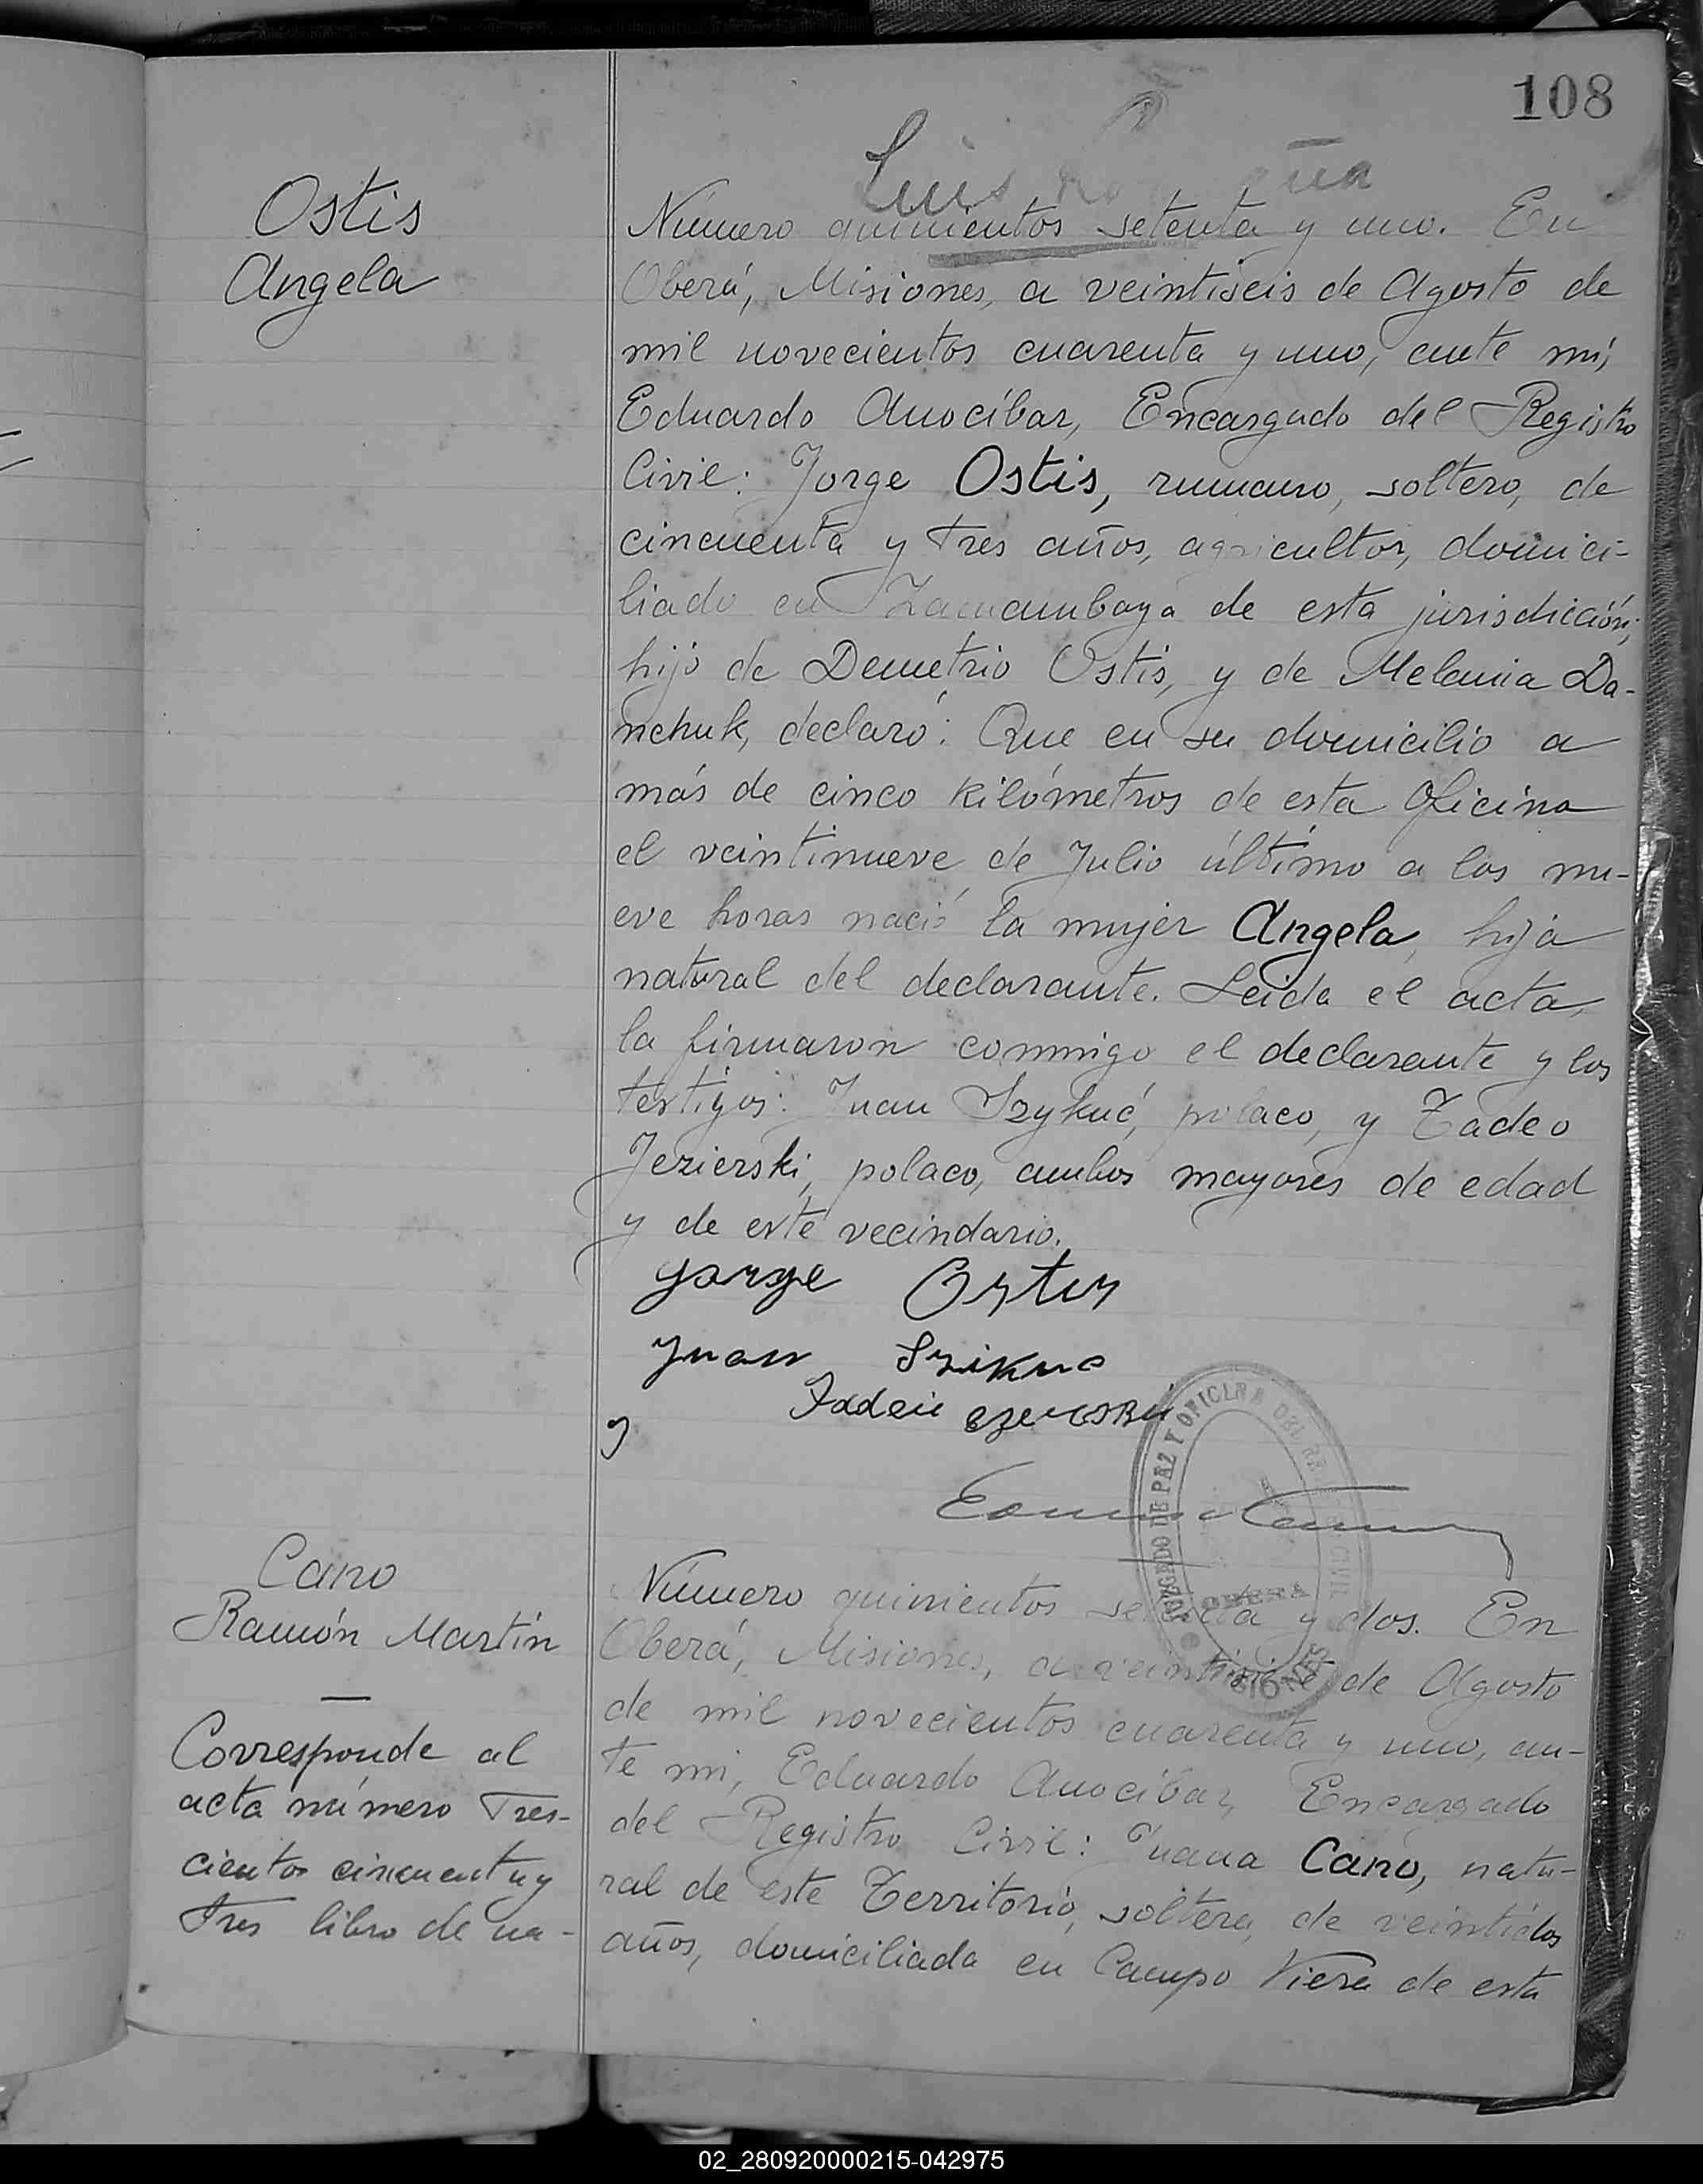 108
Luis
Ostis
Angela
Número quinientos setenta y uno. En
Oberá, Misiones, a veintiseis de Agosto de
mil novecientos cuarenta y uno, ante mí,
Eduardo Anocíbar, Encargado del Registro
Civil: Jorge Ostis, rumano, soltero, de
cincuenta y tres años, agricultor, domici-
liado en de esta jurisdicción,
hijo de Demetrio Ostis, y de Melania Da-
nchuk, declaró: Que en su domicilio a
más de cinco kilómetros de esta Oficina
el veintinueve de Julio último a las nu-
eve horas nació la mujer Angela, hija
natural del declarante. Leida el acta,
la firmaron conmigo el declarante y los
testigos: Juan Szykuć, polaco, y Tadeo
Jezierski, polaco, ambos mayores de edad
y de este vecindario.
Jorge Ostis
Juan Szikuc
JUZGADO DE PAZ Y OFICINA DEL REGISTRO CIVIL
OBERA
MISIONES
Cano
Ramón Martín
Corresponde al
acta número Tres-
cientos cincuenta y
Tres libro de na-
Número quinientos setenta y dos. En
Oberá, Misiones, a veintisiete de Agosto
de mil novecientos cuarenta y uno, an-
te mi, Eduardo Anocíbar, Encargado
del Registro Civil: Juana Cano, natu-
ral de este Territorio, soltera, de veintidos
años, domiciliada en Campo Viera de esta
02_280920000215-042975